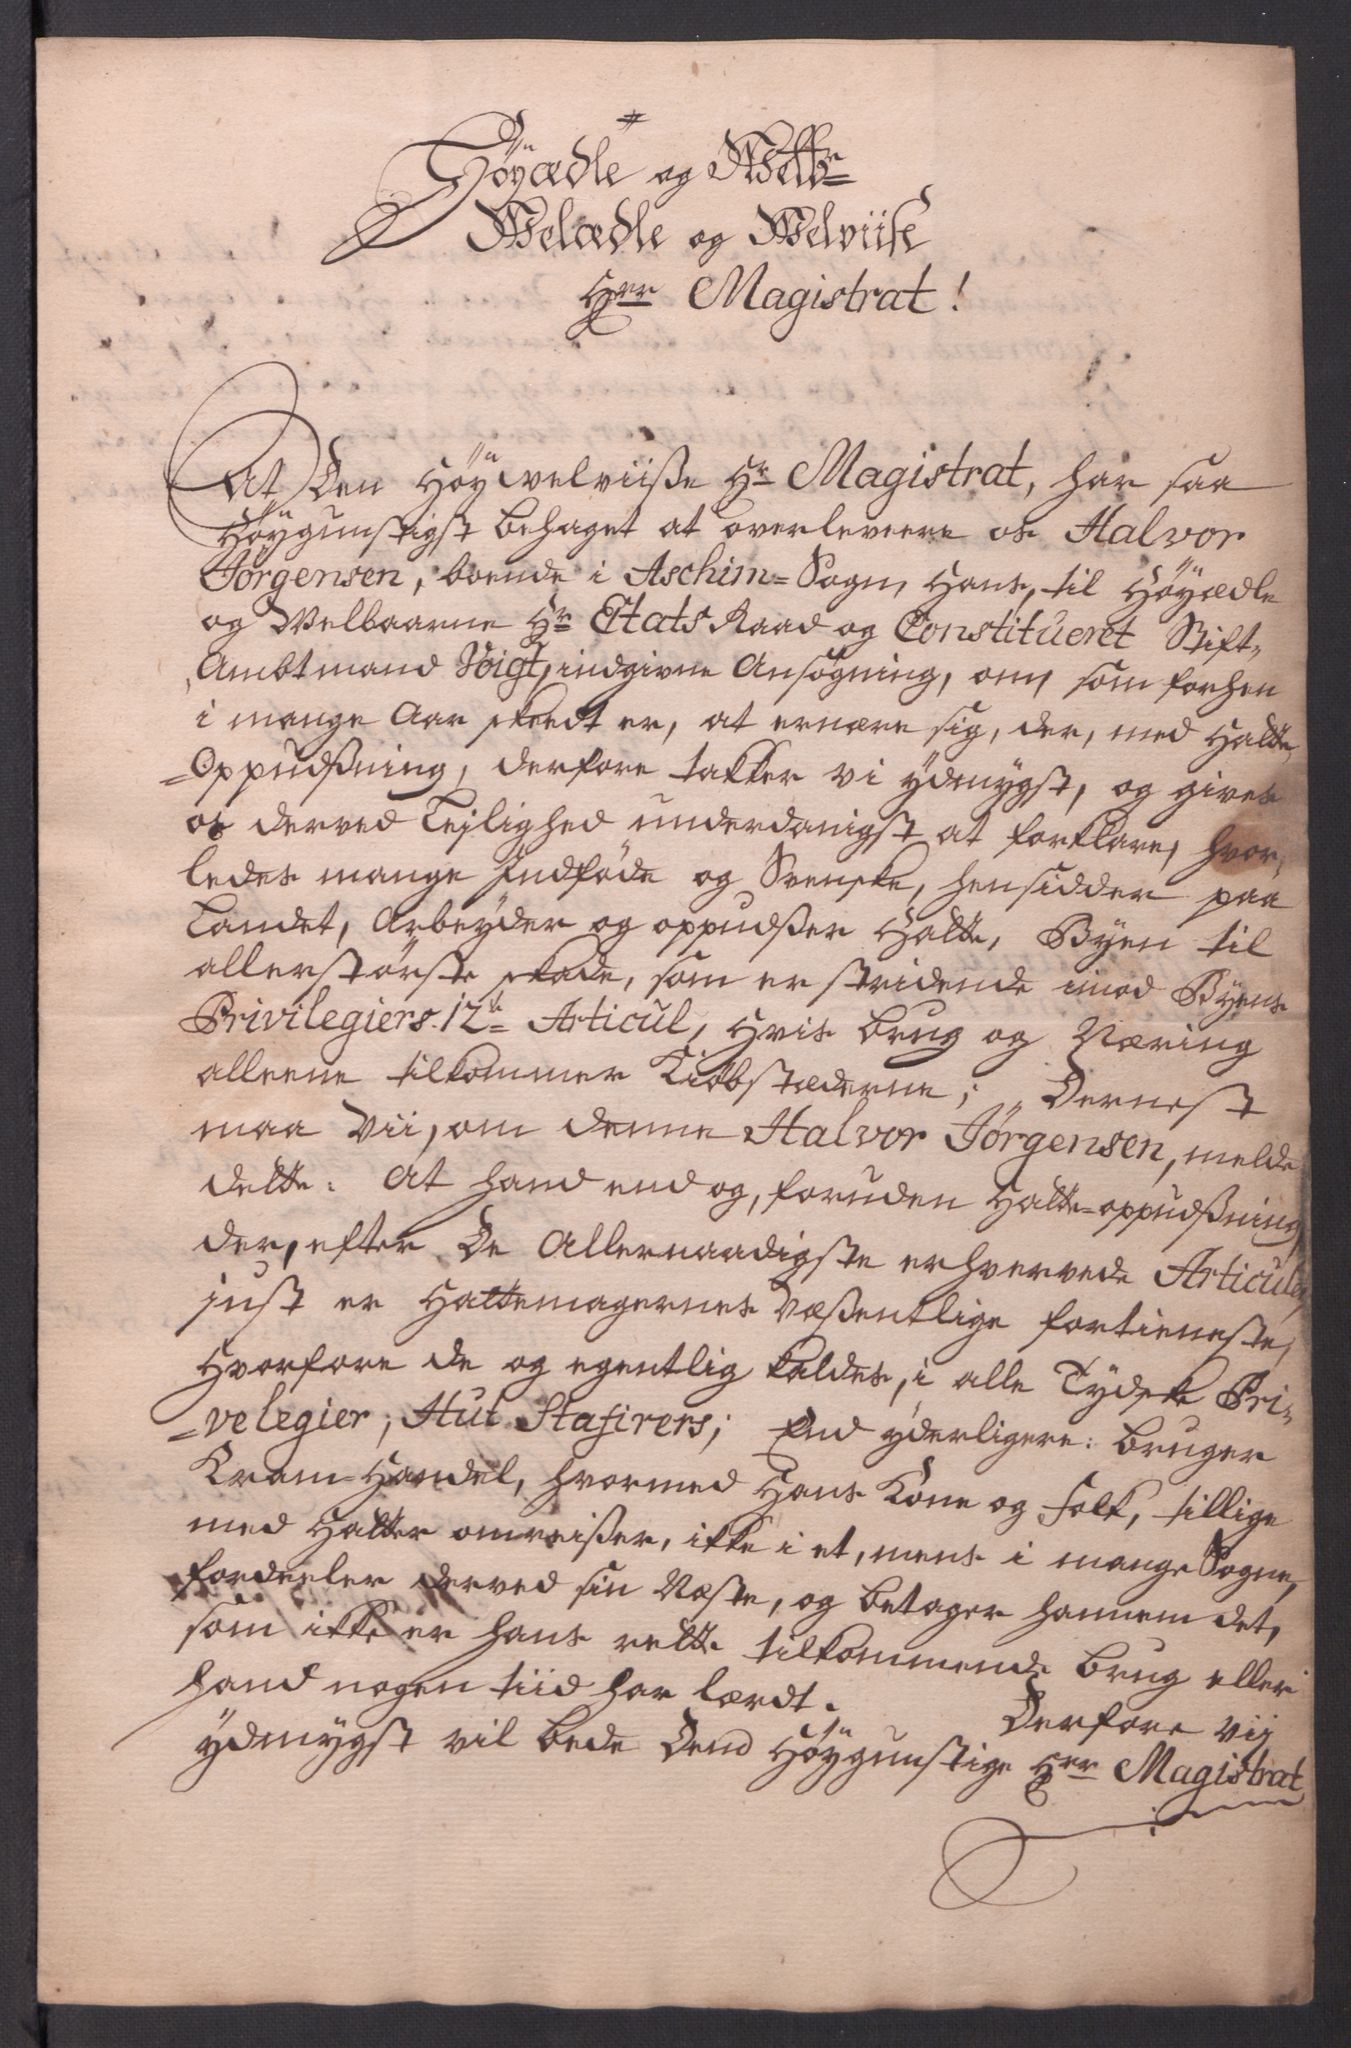 Höyædle og Welbr=
Welædle og Welviise
Hrr Magistrat!
At Den Höy welviiße Hr Magistrat, har saa
Höygunstigst behaget at overlevere os Halvor
Jörgensen, boende i Aschim=Sogn, Hans, til Höyædle
og Welbaarne Hr Etats Raad og Constitueret Stift-
Ambtmand Voigt, indgivne Ansögning, om, som forhen
i mange Aar skeedt er, at ernære sig, der, med Hatte
=Oppudßning, derfore takker vi ydmygst, og gives
os derved Lejlighed underdanigst at forklare, hvor-
ledes mange Indföde og Svenske, hensidder paa
Landet, Arbeyder og oppudßer Hatte, Byen til
allerstörste skade, som er stridende imod Byens
Privilegiers 12te Articul, Hvis brug og Næring
alleene tilkommer Kiöbstæderne; Dernest
maa Vii, om denne Halvor Jörgensen, melde
dette: At hand end og, foruden Hatte=oppudßning,
der, efter De Allernaadigste erhvervede Articuler,
just er Hattemagernes Væßentlige fortieneste,
Hvorfore de og egentlig kaldes, i alle Tydske Pri-
=velegier, Hut Stafirers; End yderligere: bruger
Kram-Handel, hvormed Hans Kone og Folk, tillige
med Hatter omreißer, ikke i et, mens i mange Sogne,
fordeeler derved sin Næste, og betager hannem det,
som ikke er hans rette tilkommende brug eller
hand nogen tiid har lærdt. Derfore vij
ydmygst vil bede Dend Höygunstige Hrr Magistrat